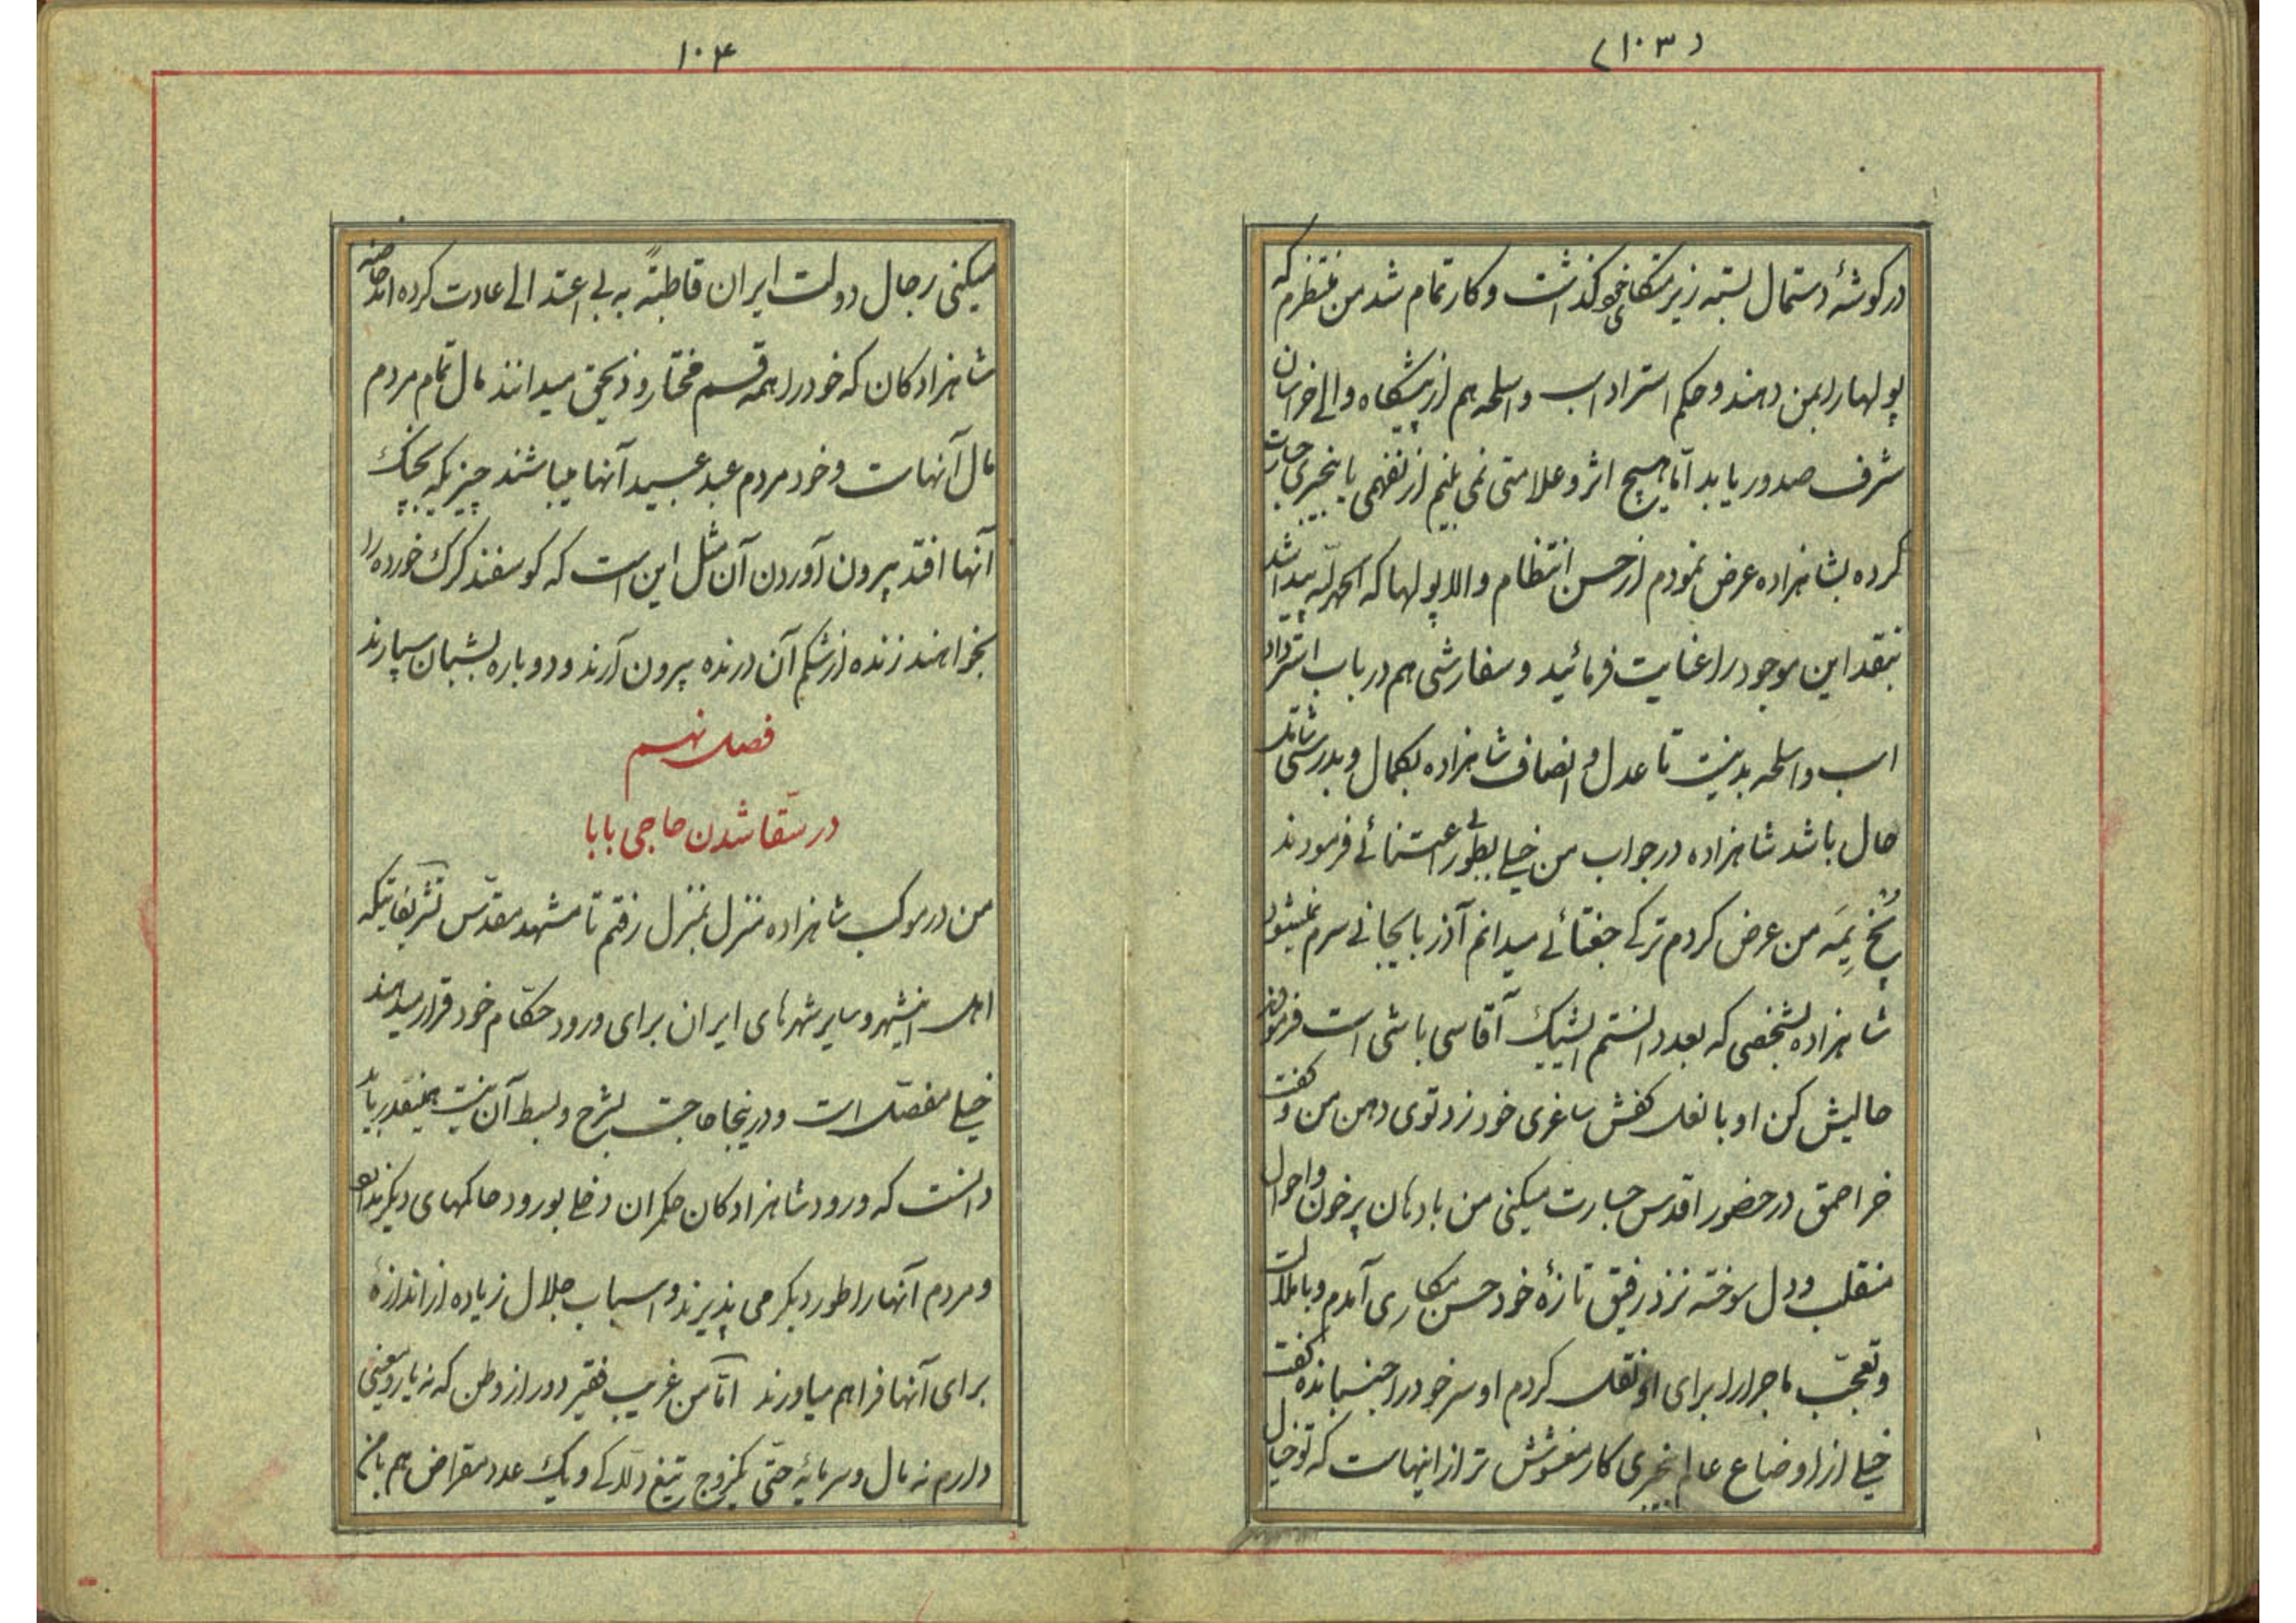 (۱۰۳)
در کوشهٔ دستمال بسته زیر متکای خود کذاشت و کار تمام شد من منتظرم که
پولها را بمن دهند و حکم استرداد اسب و اسلحه هم از پیشگاه والی خراسان
شرف صدور یابد امّا هیچ اثر و علامتی نمی بینم از نفهمی یا بیخبری جسارت
کرده بشاهزاده عرض نمودم از حسن انتظام والا پولها که الحمد لله پیدا شد
نقد این موجود را عنایت فرمائید و سفارشی هم در باب استرداد
اسب و اسلحه بدنیست تا عدل و انصاف شاهزاده بکمال و بدرستی شامل
حال باشد شاهزاده در جواب من خیلی بطور بی اعتنائی فرمودند
پُخ یِمَه من عرض کردم ترکی جغتائی میدانم آذربایجانی سرم نمیشود
شاهزاده بشخصی که بعد دانستم ایشیک آقاسی باشی است فرمودند
حالیش کن او با نعل کفش ساغری خود زد توی دهن من و گفت
خر احمق در حضور اقدس جسارت میکنی من با دهان پر خون و احوال
منقلب و دل سوخته نزد رفیق تازهٔ خود حسن مکاری آمدم و با ملالت
و تعجّب ماجرا را برای او نقل کردم او سر خود را جنبانده گفت
خیلی از اوضاع عالم بیخبری کار مغشوش تر از اینهاست که تو خیال
۱۰۴
میکنی رجال دولت ایران قاطبةً به بی اعتدالی عادت کرده اند خاصه
شاهزادکان که خود را همه قسم مختار و ذیحق میدانند مال تمام مردم
مال آنهاست و خود مردم عبد عبید آنها میباشند چیزیکه بچنک
آنها افتد بیرون آوردن آن مثل این است که کوسفند کرک خورده را
بخواهند زنده از شکم آن درنده بیرون آرند و دوباره بشبان سپارند
فصل نهم
در سقّا شدن حاجی بابا
من در موکب شاهزاده منزل بمنزل رفتم تا مشهد مقدّس تشریفاتیکه
اهل اینشهر و سایر شهرهای ایران برای ورود حکّام خود قرار میدهند
خیلی مفصّل است و در اینجا حاجت بشرح و بسط آن نیست همینقدر باید
دانست که ورود شاهزادکان حکمران دخلی بورود حاکمهای دیگر ندارد
و مردم آنها را طور دیگر می پذیرند و اسباب جلال زیاده از اندازهٔ
برای آنها فراهم میاورند امّا من غریب فقیر دور از وطن که نه یار و معینی
دارم نه مال و سرمایهٔ حتّی یکزوج تیغ دلّاکی و یک عدد مقراض هم با من